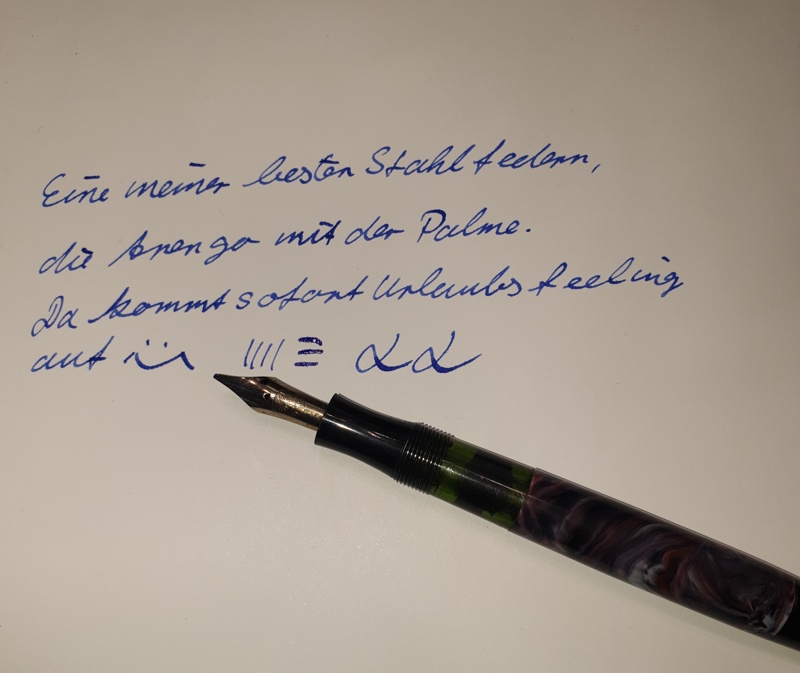 Eine meiner besten Stahlfedern,
die brengo mit der Palme.
Da kommt sofort Urlaubsfeeling
auf